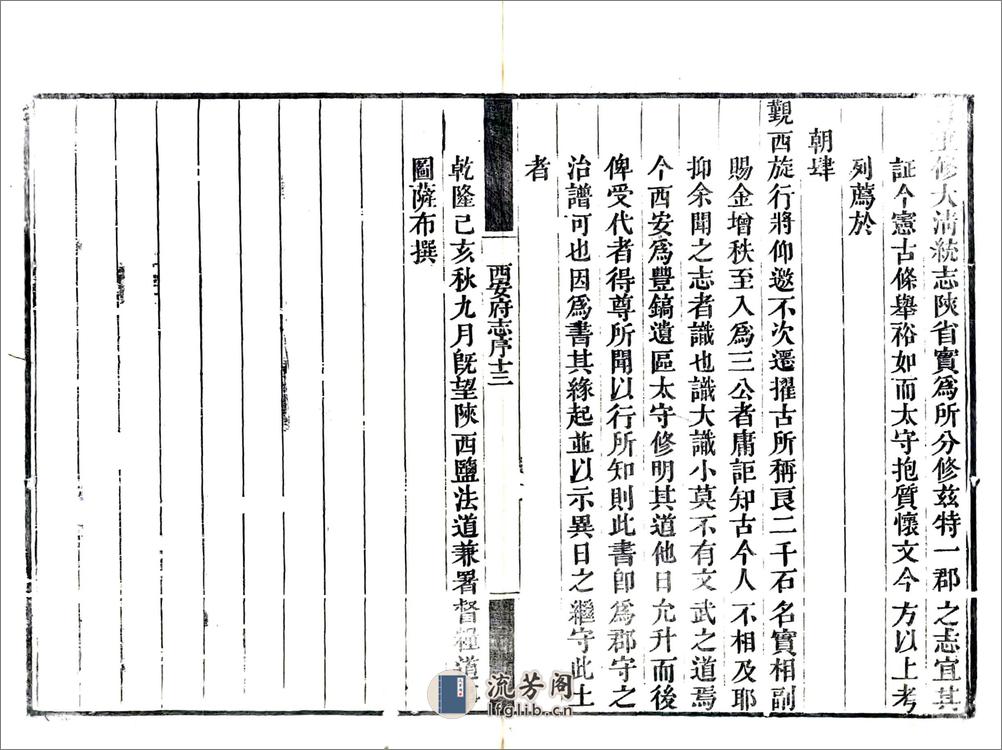 修大淸統志陝省實爲所分修兹特一郡之志宜其
証今憲古條舉裕如而太守抱質懷文今方以上考
列薦於
朝肆
覲西旋行將仰邀不次遷擢古所稱良二千石名實相副
賜金增秩至入爲三公者庸詎知古今人不相及耶
抑余聞之志者識也識大識小莫不有文武之道焉
今西安爲豐鎬遺區太守修明其道他日允升而後
俾受代者得尊所聞以行所知則此書卽爲郡守之
治譜可也因爲書其緣起並以示異日之繼守此土
者
西安府志序 十三
乾隆己亥秋九月旣望陝西鹽法道兼署督糧道
圖薩布撰
流芳阁
lfglib.cn